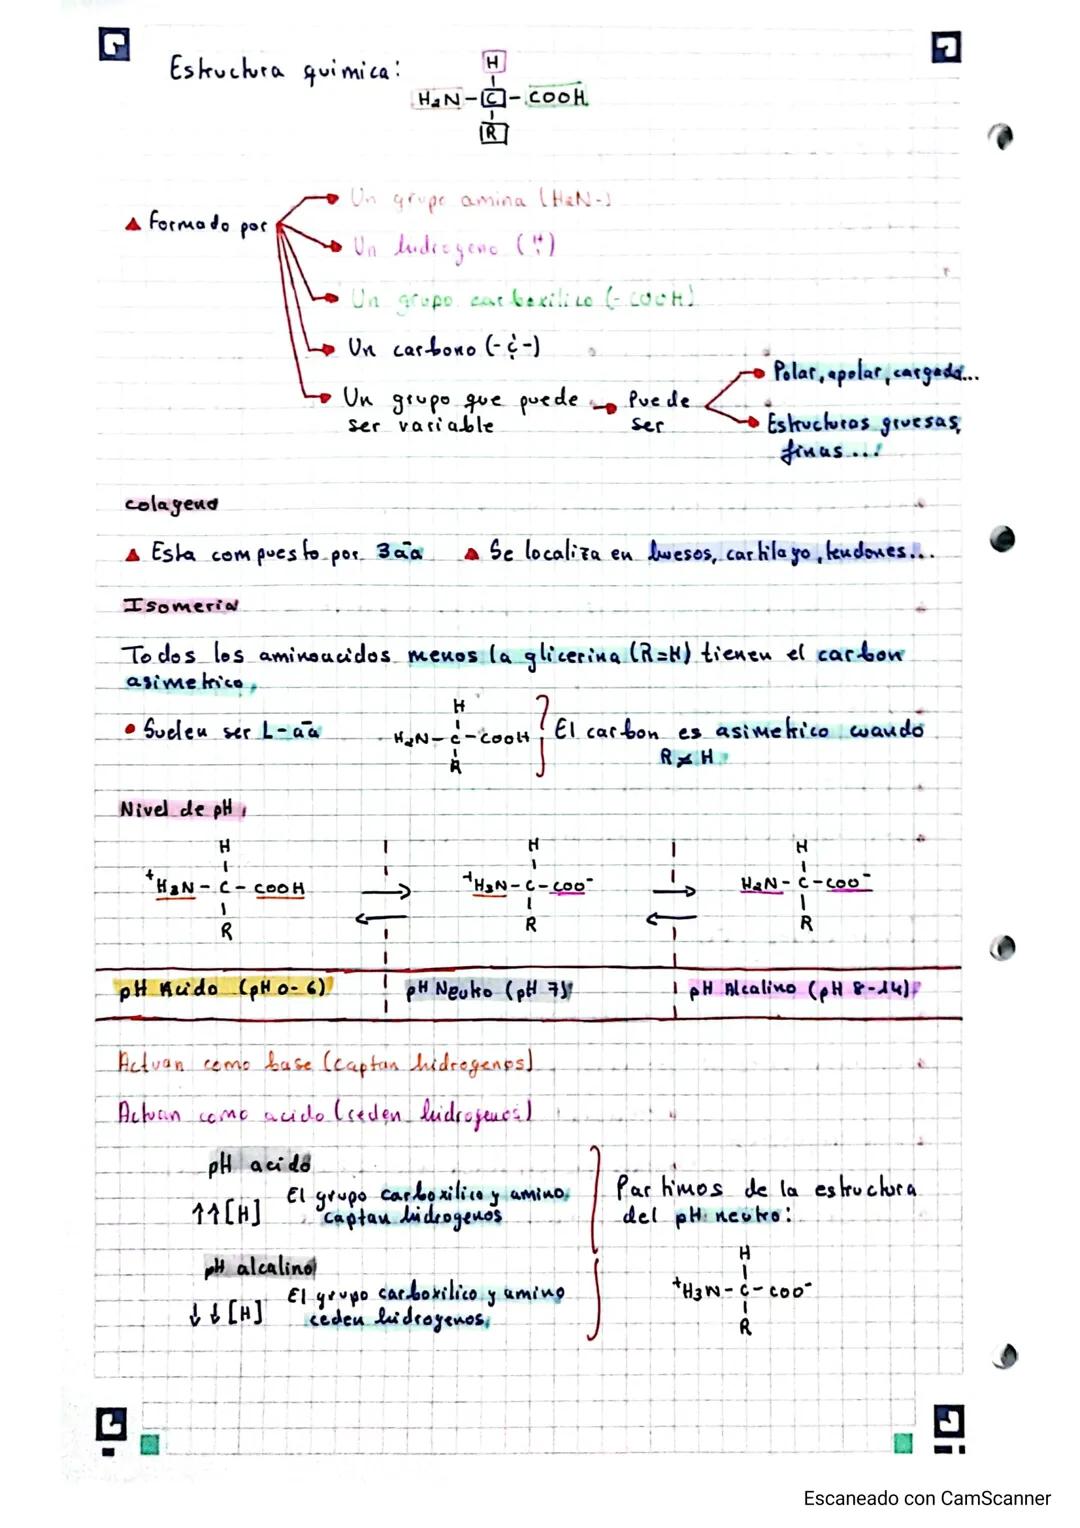 Estructura quimica:
H
H2N-C-COOH
R
Formado por
Un grupo amina (H2N-)
Un hidrogeno (H)
Un grupo carboxilico (-COOH)
Un carbono (-C-)
Un grupo que puede
ser variable
Puede
ser
Polar, apolar, cargada...
Estructuras gruesas,
finas...
colageno
Esta compuesto por 3 aa
Se localiza en huesos, cartilago, tendones...
Isomeria
Todos los aminoacidos menos la glicerina (R=H) tienen el carbon
asimetrico,
Suelen ser L-aa
H
H2N-C-COOH
R
El carbon es asimetrico cuando
R≠H
Nivel de pH
H H H
+H3N-C-COOH +H3N-C-COO- H2N-C-COO-
R R R
pH Acido (pH 0-6) pH Neutro (pH 7) pH Alcalino (pH 8-14)
Actuan como base (captan hidrogenos)
Actuan como acido (ceden hidrogenos)
pH acido
↑↑[H] El grupo carboxilico y amino
captan hidrogenos
pH alcalino
↓↓[H] El grupo carboxilico y amino
ceden hidrogenos
Partimos de la estructura
del pH neutro:
H
+H3N-C-COO-
R
Escaneado con CamScanner